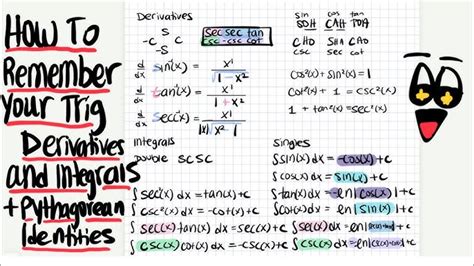 How To
Remember
Your Trig
Derivatives
and Integrals
+ Pythagorean
Identities
Derivatives
S
-C -C
S
sec sec tan
csc -csc cot
d/dx sin⁻¹(x) = x'/√1-x²
d/dx tan⁻¹(x) = x'/1+x²
d/dx sec⁻¹(x) = x'/|x|√x²-1
sin cos tan
SOH CAH TOA
CHO SHA CAO
cos²(x)+sin²(x)=1
cot²(x) + 1 = csc²(x)
1 + tan²(x) = sec²(x)
Integrals
Double SCSC
∫sec²(x) dx = tan(x) + c
∫csc²(x) dx = -cot(x) + c
∫sec(x) tan(x) dx = sec(x) + c
∫csc(x) cot(x) dx = -csc(x) + c
Singles
∫sin(x) dx = -cos(x) + c
∫cos(x) dx = sin(x) + c
∫tan(x) dx = -ln|cos(x)| + c
∫cot(x) dx = ln|sin(x)| + c
∫sec(x) dx = ln|sec(x)+tan(x)| + c
∫csc(x) dx = -ln|csc(x)+cot(x)| + c